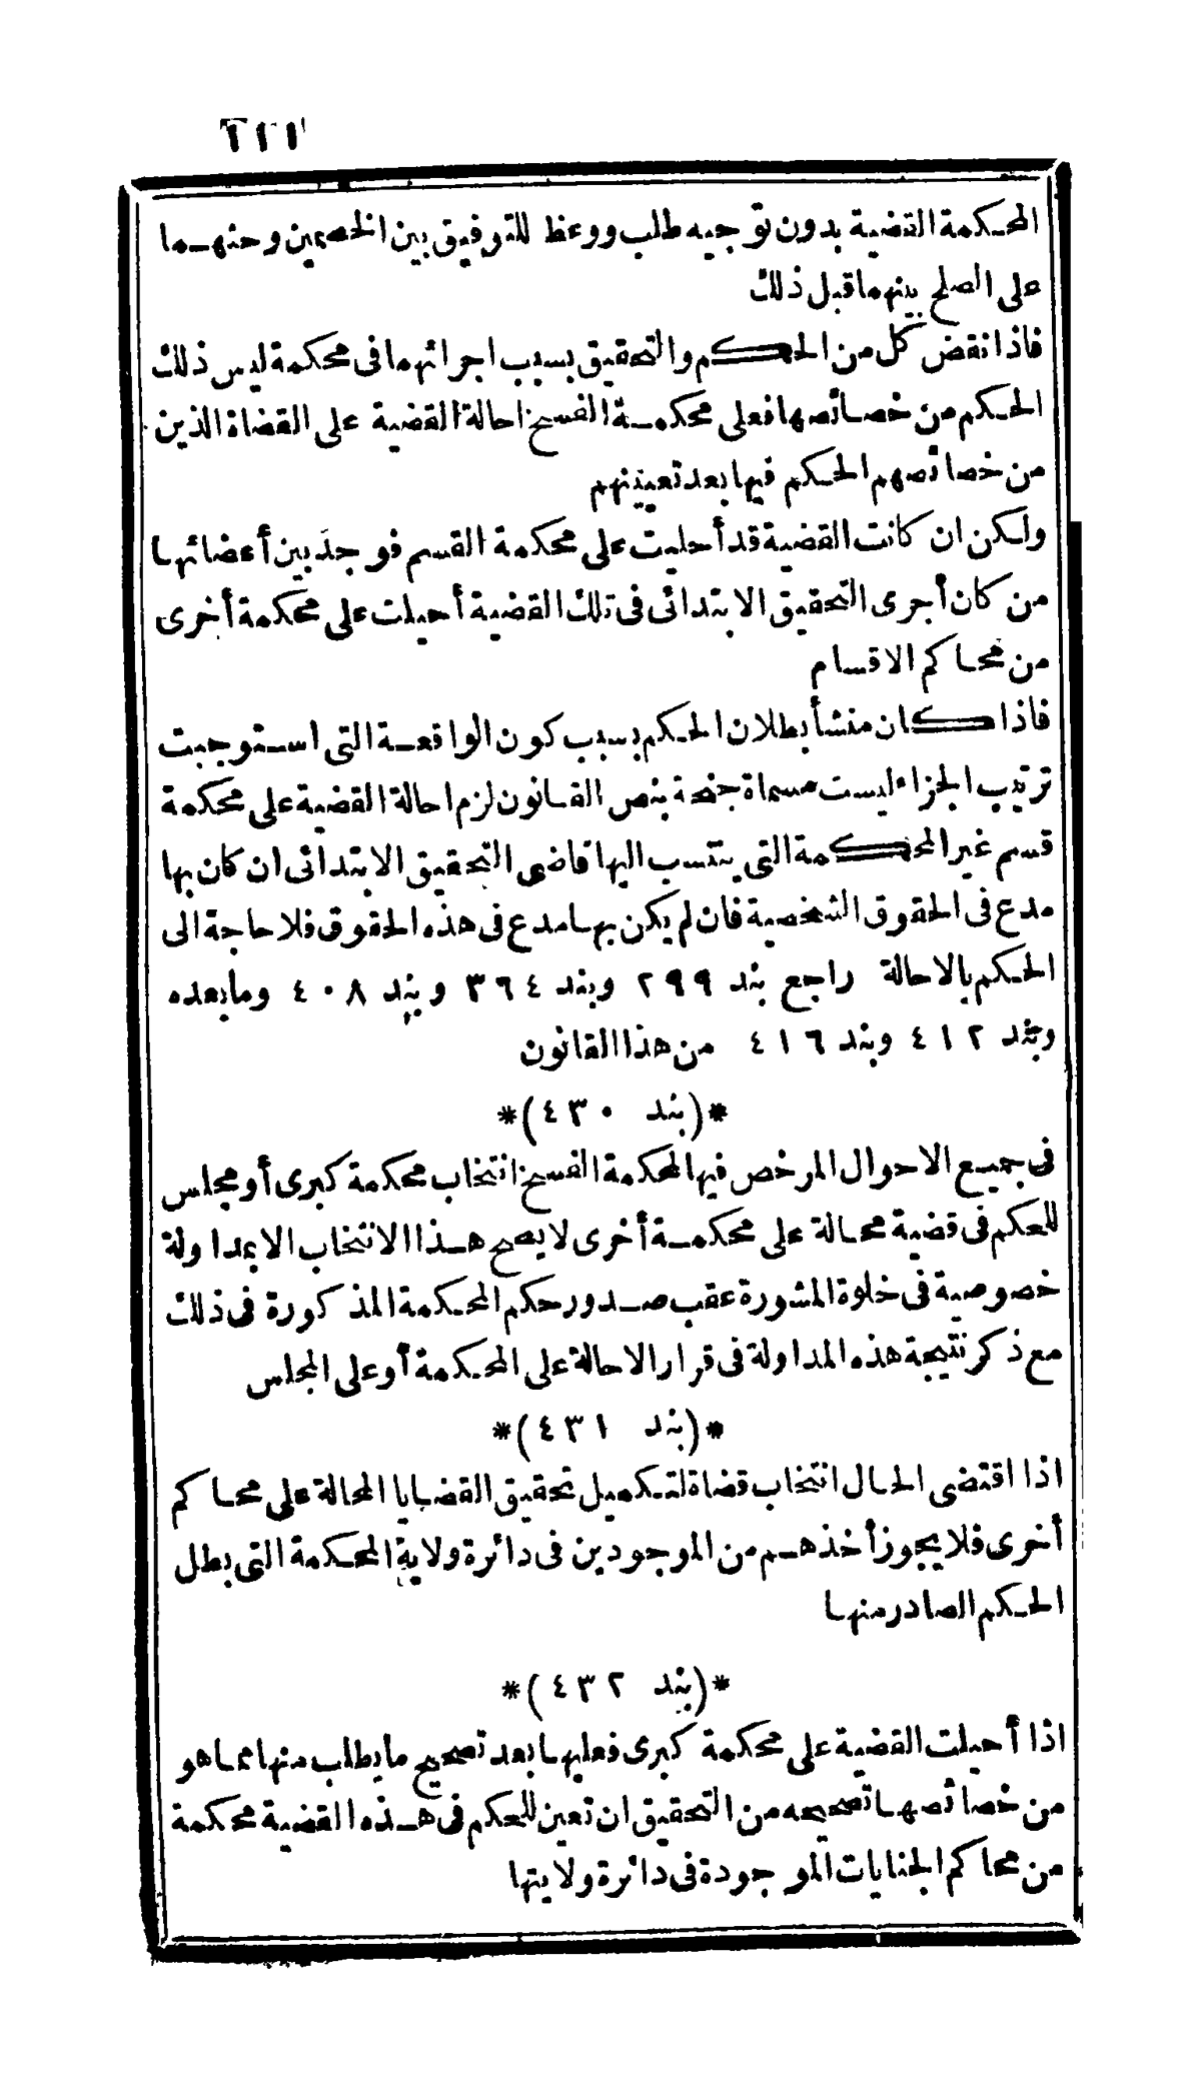 المحكمة القضية بدون توجيه طلب ووعظ للتوفيق بين الخصمين وحثهما
على الصلح بينهما قبل ذلك
فاذا نقض كل من الحكم والتحقيق بسبب اجرائهما فى محكمة ليس ذلك
الحكم من خصائصها فعلى محكمة الفسخ احالة القضية على القضاة الذين
من خصائصهم الحكم فيها بعد تعيينهم
ولكن ان كانت القضية قد أحليت على محكمة القسم فوجد بين أعضائها
من كان أجرى التحقيق الابتدائى فى تلك القضية أحيلت على محكمة أخرى
من محاكم الاقسام
فاذا كان منشأ بطلان الحكم بسبب كون الواقعة التى استوجبت
ترتيب الجزاء ليست مسماة جنحة بنص القانون لزم احالة القضية على محكمة
قسم غير المحكمة التى ينتسب اليها قاضى التحقيق الابتدائى ان كان بها
مدع فى الحقوق الشخصية فان لم يكن بها مدع فى هذه الحقوق فلا حاجة الى
الحكم بالاحالة راجع بند ٢٩٩ وبند ٣٦٤ وبند ٤٠٨ وما بعده
وبند ٤١٢ وبند ٤١٦ من هذا القانون
*(بند ٤٣٠)*
فى جميع الاحوال المرخص فيها لمحكمة الفسخ انتخاب محكمة كبرى أو مجلس
للحكم فى قضية محالة على محكمة أخرى لا يصح هذا الانتخاب الا بمداولة
خصوصية فى خلوة المشورة عقب صدور حكم المحكمة المذكورة فى ذلك
مع ذكر نتيجة هذه المداولة فى قرار الاحالة على المحكمة أو على المجلس
*(بند ٤٣١)*
اذا اقتضى الحال انتخاب قضاة لتكميل تحقيق القضايا المحالة على محاكم
أخرى فلا يجوز أخذهم من الموجودين فى دائرة ولاية المحكمة التى بطل
الحكم الصادر منها
*(بند ٤٣٢)*
اذا أحيلت القضية على محكمة كبرى فعليها بعد تصحيح ما يطلب منها مما هو
من خصائصها تصحيحه من التحقيق ان تعين للحكم فى هذه القضية محكمة
من محاكم الجنايات الموجودة فى دائرة ولايتها